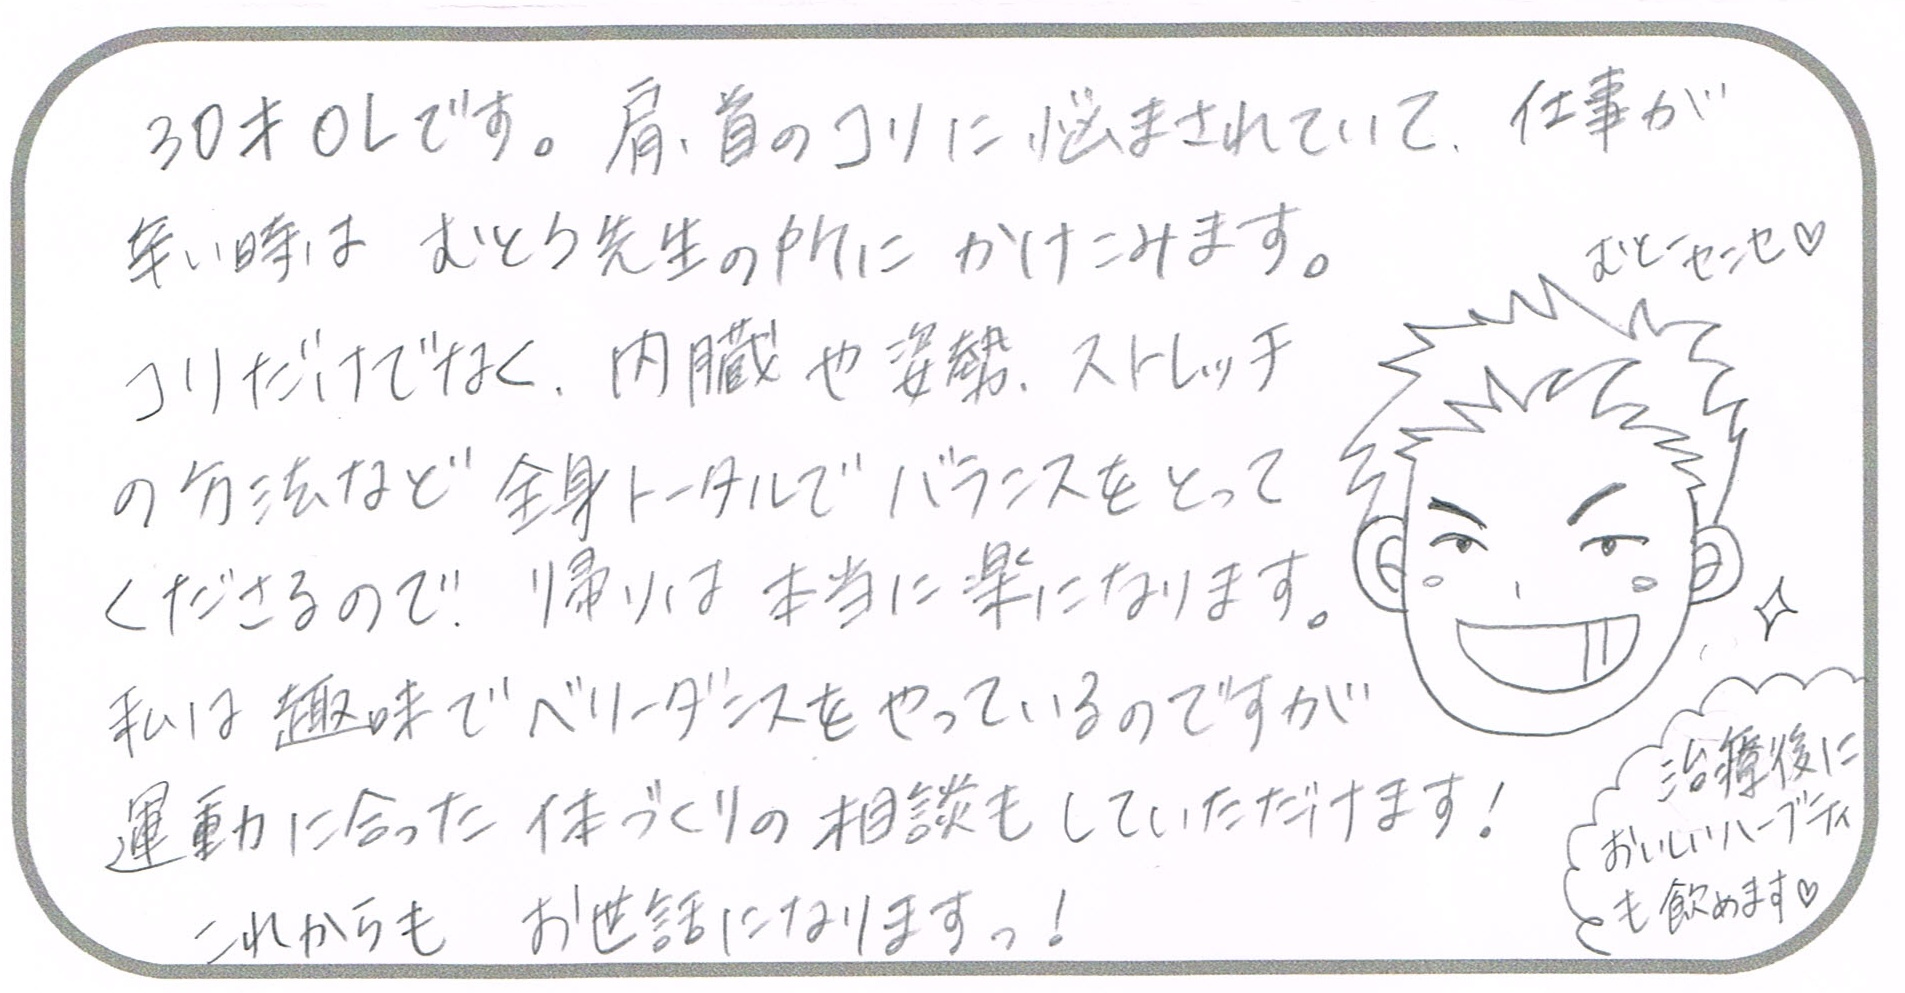 30才OLです。肩、首のコリに悩まされていて、仕事が
辛い時は むとう先生の所に かけこみます。
コリだけでなく、内臓や姿勢、ストレッチ
の方法など 全身トータルで バランスをとって
くださるので、帰りは 本当に楽になります。
私は 趣味で ベリーダンスをやっているのですが
運動に合った 体づくりの相談もしていただけます!
これからも お世話になりますっ!
むとーセンセ♡
治療後に
おいしいハーブティ
も飲めます♡